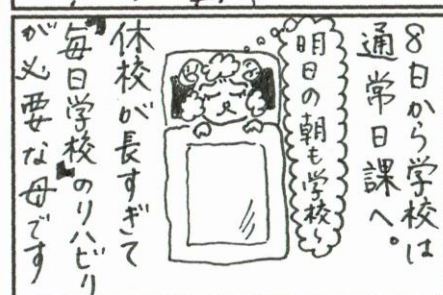 8日から学校は
通常日課へ。
明日の朝も学校〜
休校が長すぎて
"毎日学校"のリハビリ
が必要な母です